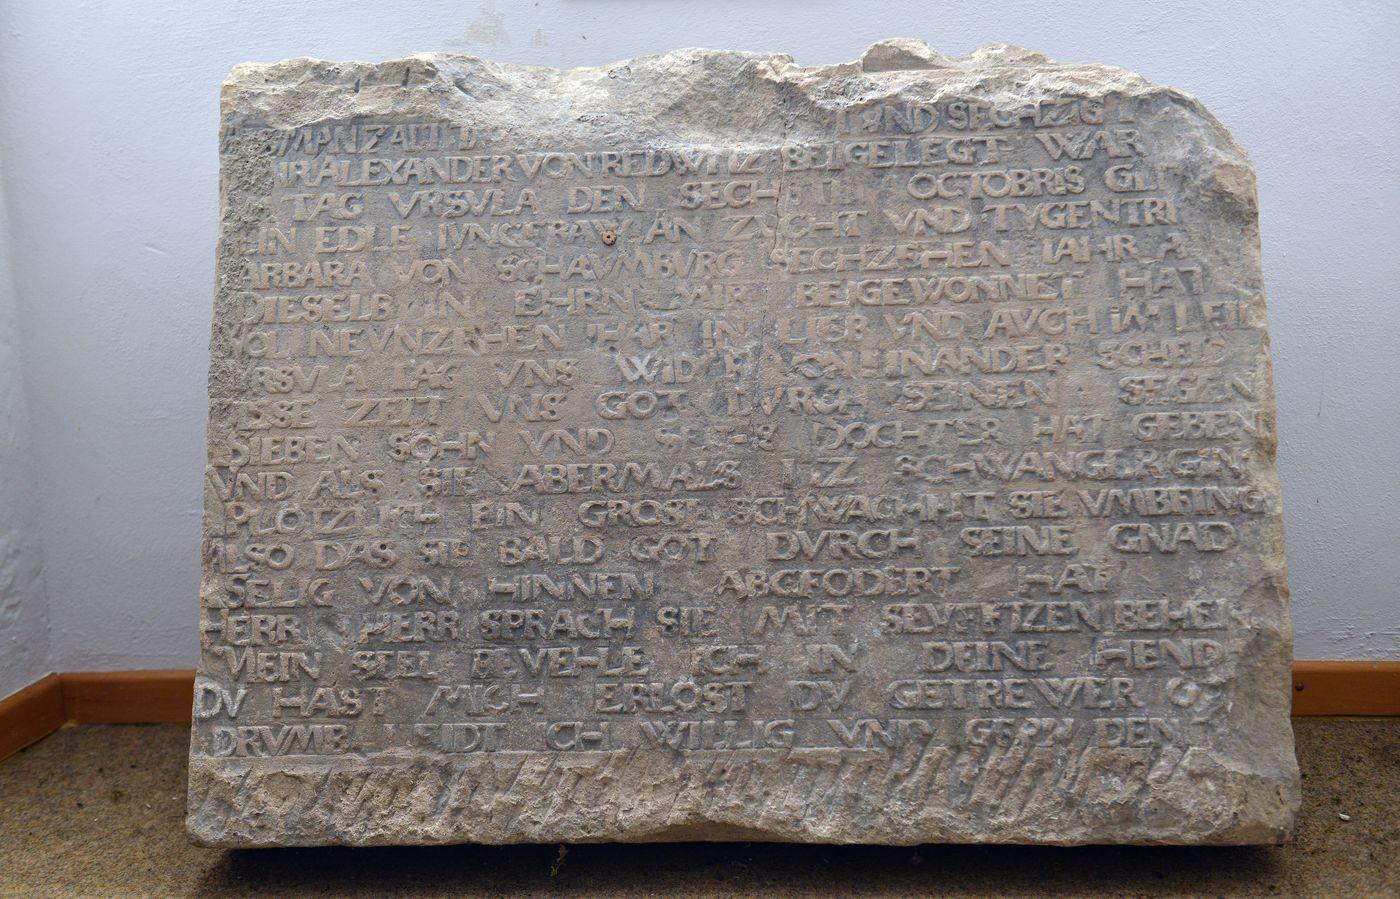 ALS MAN ZALT VND SECHZIG
IHR ALEXANDER VON REDWITZ BEIGELEGT WAR
TAG VRSVLA DEN SECHS OCTOBRIS
EIN EDLE IVNGFRAW AN ZVCHT VND TVGENT
BARBARA VON SCHAVMBVRG SECHZEHEN IAHR
DIESELB IN EHRN MIR BEIGEWONNET HAT
NEVNZEHEN IHAR IN LIEB VND AVCH IN LEID
VRSVLA TAG VNS WIDER VON EINANDER SCHEID
ZEIT VNS GOT DVRCH SEINEN SEGEN
SIEBEN SOHN VND SECHS DOCHTER HAT GEBEN
VND ALS SIE ABERMALS SCHWANGER GEN
PLOTZLICH EIN GROSE SCHWACHHT SIE VMBFING
ALSO DAS SIE BALD GOT DVRCH SEINE GNAD
SELIG VON HINNEN ABGFODERT HAT
HERR HERR SPRACH SIE MIT SEVFTZEN BEHEN
MEIN SEEL BEVEHLE ICH IN DEINE HEND
DV HAST MICH ERLOST DV GETREWER
DRVMB LEIDT ICH WILLIG VND GERN DEN